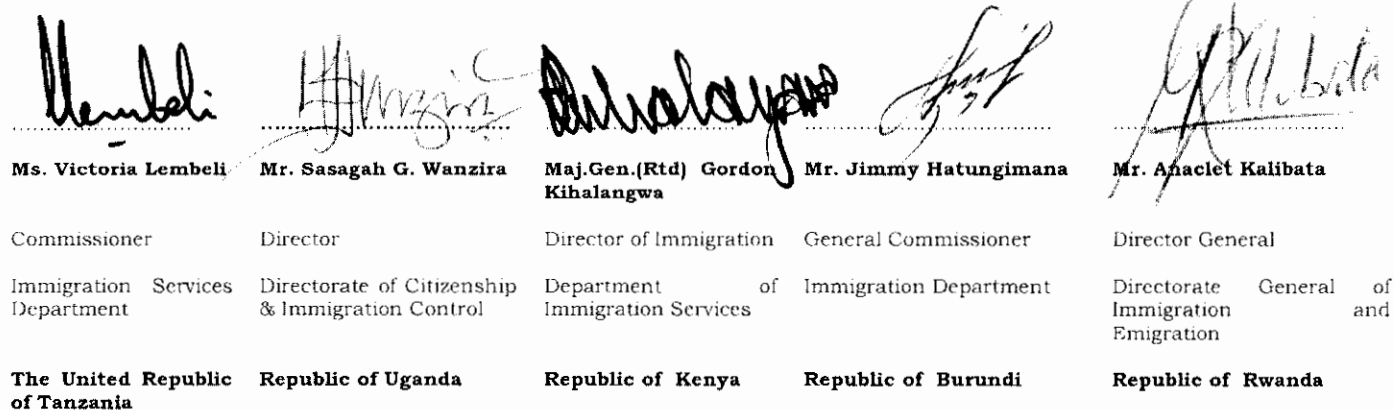 Lembeli
Ms. Victoria Lembeli
Commissioner
Immigration Services
Department
The United Republic
of Tanzania
Mr. Sasagah G. Wanzira
Director
Directorate of Citizenship
& Immigration Control
Republic of Uganda
Maj.Gen.(Rtd) Gordon
Kihalangwa
Director of Immigration
Department of
Immigration Services
Republic of Kenya
Mr. Jimmy Hatungimana
General Commissioner
Immigration Department
Republic of Burundi
Mr. Anaclet Kalibata
Director General
Directorate General of
Immigration and
Emigration
Republic of Rwanda